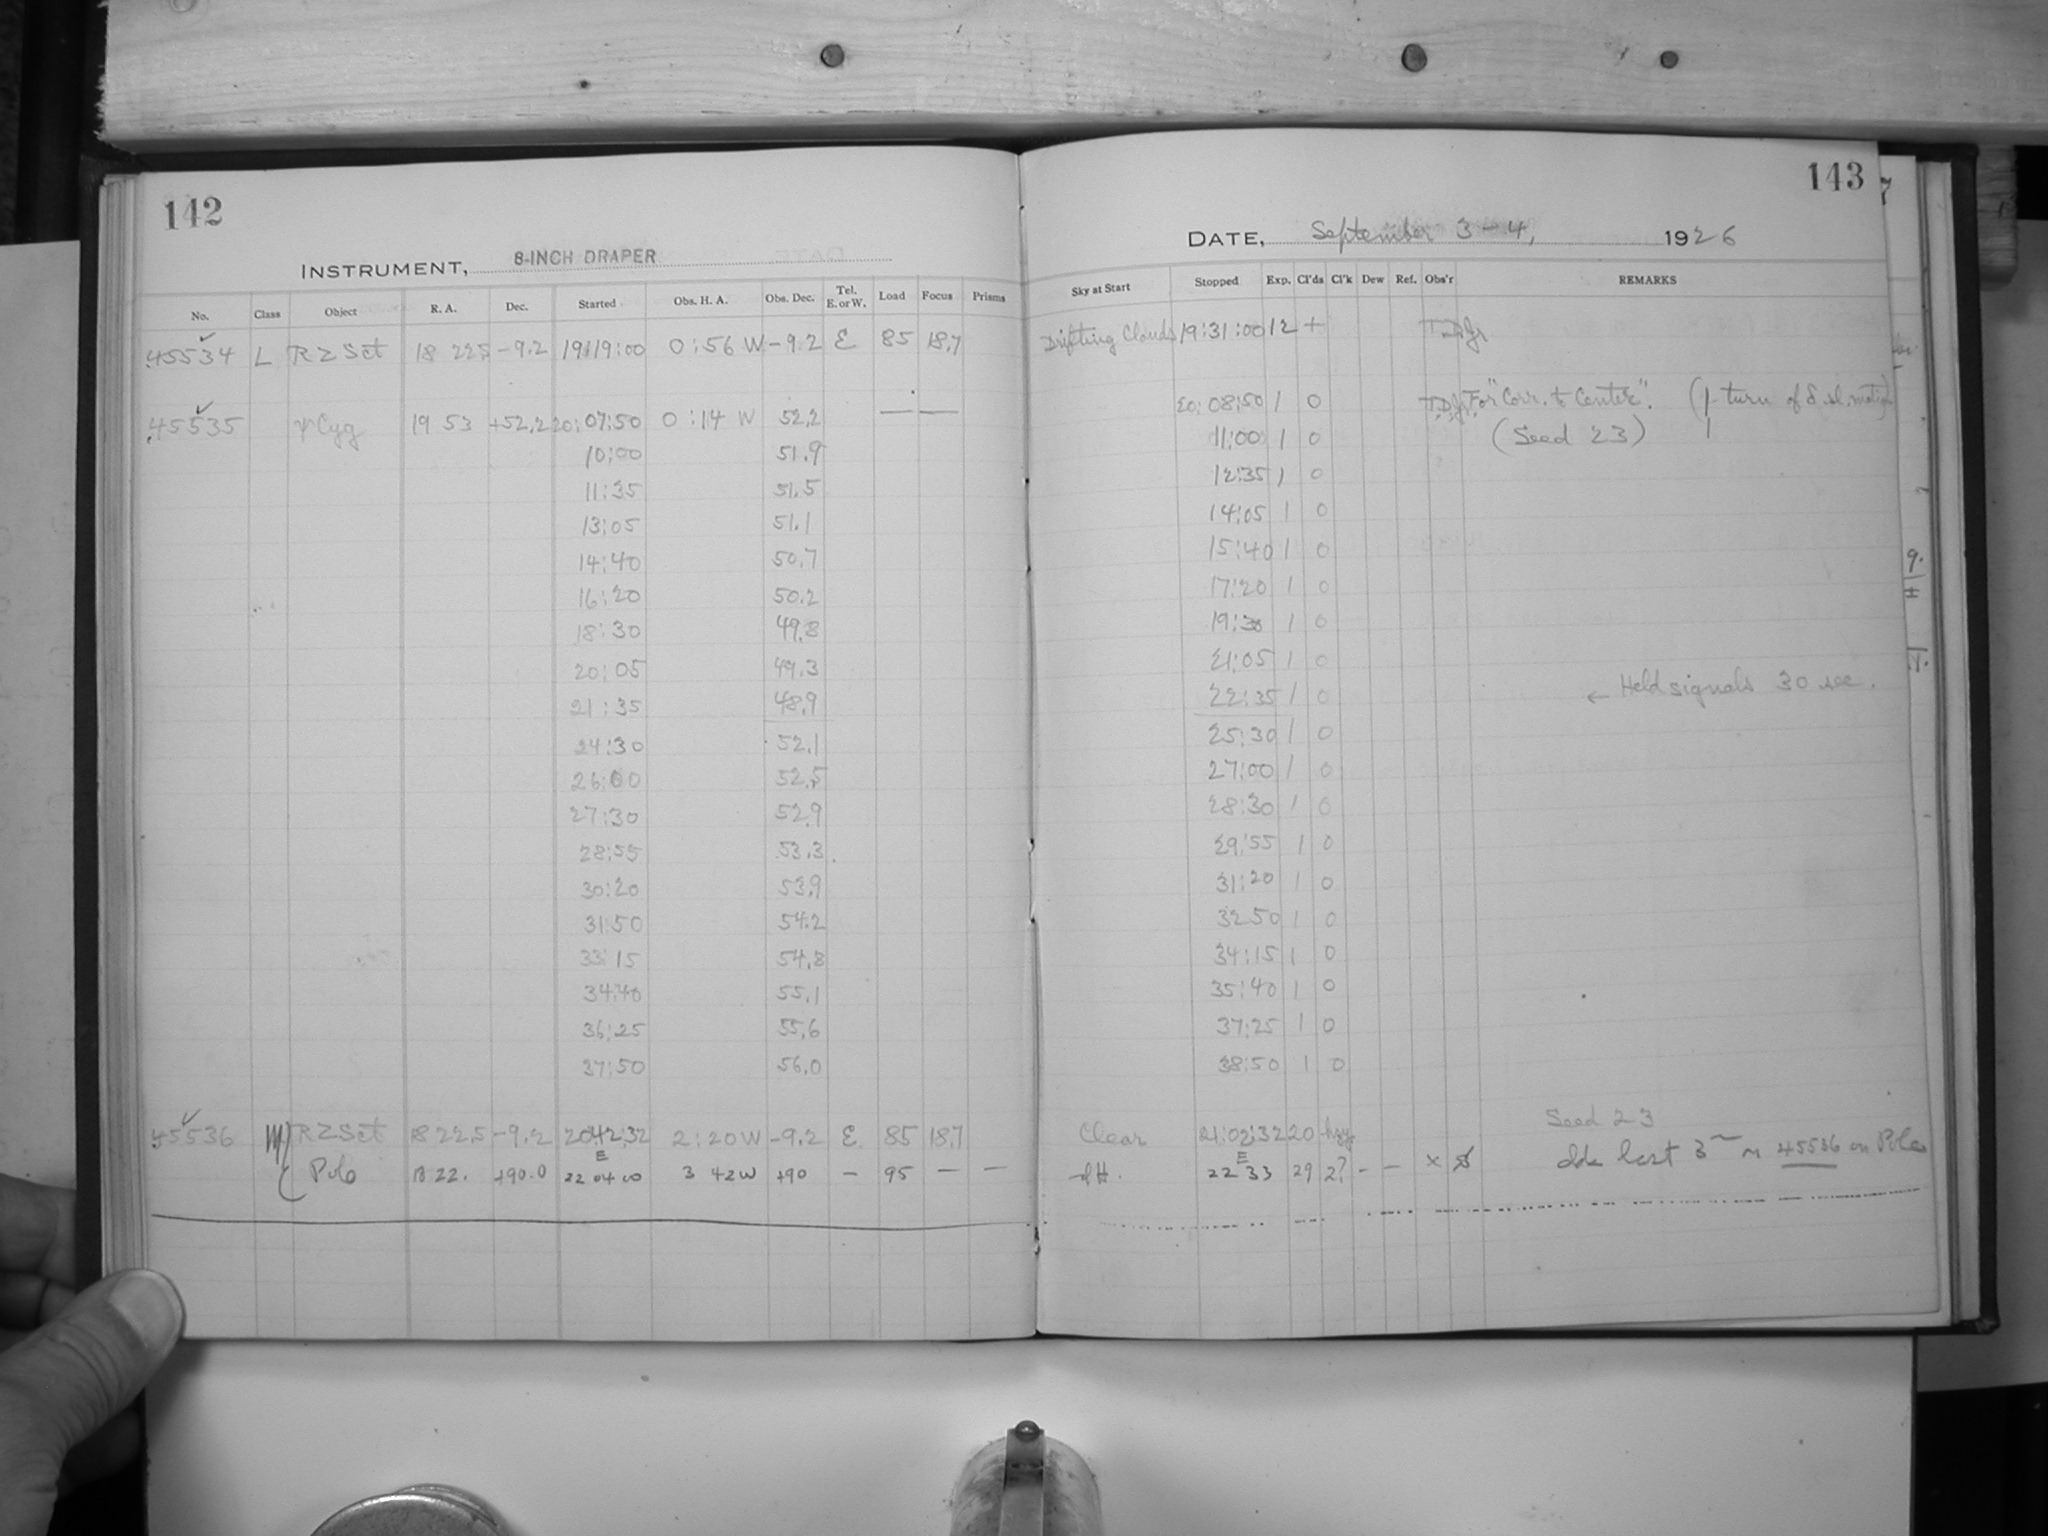 142
INSTRUMENT, 8-INCH DRAPER
No. Class Object R. A. Dec. Started Obs. H. A. Obs. Dec. Tel. E. or W. Load Focus Prisms
45534 L RZ Sct 18 22.5 -9.2 19:19:00 0:56 W -9.2 E 85 18.7
45535 ψ Cyg 19 53 +52.2 20:07:50 0:14 W 52.2 — —
10:00 51.9
11:35 51.5
13:05 51.1
14:40 50.7
16:20 50.2
18:30 49.8
20:05 49.3
21:35 48.9
24:30 52.1
26:00 52.5
27:30 52.9
28:55 53.3
30:20 53.9
31:50 54.2
33:15 54.8
34:40 55.1
36:25 55.6
37:50 56.0
45536 M RZ Sct 18 22.5 -9.2 20:42:32 2:20 W -9.2 E 85 18.7
Polo 18 22. +90.0 22 04 00 3 42 W +90 — 95 — —
143
DATE, September 3-4, 1926
Sky at Start Stopped Exp. Cl'ds Cl'k Dew Ref. Obs'r REMARKS
Drifting Clouds 19:31:00 12 +
20:08:50 1 0 For "Corr. to Center". (1 turn of δ sl. motion)
11:00 1 0 (Seed 23)
12:35 1 0
14:05 1 0
15:40 1 0
17:20 1 0
19:30 1 0
21:05 1 0
22:35 1 0 ← Held signals 30 sec.
25:30 1 0
27:00 1 0
28:30 1 0
29:55 1 0
31:20 1 0
32 50 1 0
34:15 1 0
35:40 1 0
37:25 1 0
38:50 1 0
Seed 23
Clear 21:02:32 20 hzy
22 33 29 2? — — × last 3 45536 on Pole